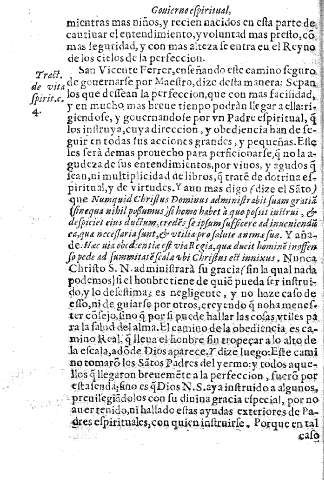 Gouierno espiritual,
mientras mas niños, y recien nacidos en esta parte de
cautiuar el entendimiento, y voluntad mas presto, cõ
mas seguridad, y con mas alteza se entra en el Reyno
de los cielos de la perfeccion.
San Vicente Ferrer, enseñando este camino seguro
Tract.
de gouernarse por Maestro, dize desta manera: Sepan
de vita
los que dessean la perfeccion, que con mas facilidad,
spirit. c.
y en mucho mas breue tiempo podràn llegar a ella: ri
4.
giendose, y gouernandose por vn Padre espiritual, q̃
los instruya, cuya direccion, y obediencia han de se-
guir en todas sus acciones grandes, y pequeñas. Este
les serà de mas prouecho para perfecionarse, q̃ no la a-
gudeza de sus entendimientos, por viuos, y agudos q̃
sean, ni multiplicidad de libros, q̃ tratẽ de dotrina es-
piritual, y de virtudes. Y aun mas digo (dize el Sãto)
que Nunquid Christus Dominus administrabit suam gratiã
sine qua nihil possumus, si homo habet à quo possit instrui, &
despiciet eius ductum, credẽs se ipsum sufficere ad inueniendũ
ea, quæ necessaria sunt, & vtilia pro salute animæ suæ. Y aña-
de. Hæc via obedientiæ est via Regia, quæ ducit hominẽ inoffen
so pede ad summitatẽ scalæ vbi Christus est innixus. Nunca
Christo S. N. administrarà su gracia (sin la qual nada
podemos) si el hombre tiene de quiẽ pueda ser instrui-
do, y lo desestima; es negligente, y no haze caso de
esso, ni de guiarse por otros, creyendo q̃ no ha menes-
ter cõsejo, sino q̃ por si puede hallar las cosas vtiles pa
ra la salud del alma. El camino de la obediencia es ca-
mino Real, q̃ lleua el honbre sin tropeçar a lo alto de
la escala, adõde Dios aparece. Y dize luego: Este cami
no tomarõ los Sãtos Padres del yermo: y todos aque-
llos q̃ llegaron breuemẽte a la perfeccion, fuerõ por
esta senda; sino es q̃ Dios N. S. aya instruido a algunos,
preuilegiãdolos con su diuina gracia especial, por no
auer tenido, ni hallado estas ayudas exteriores de Pa-
dres espirituales, con quien instruirse. Porque en tal
caso